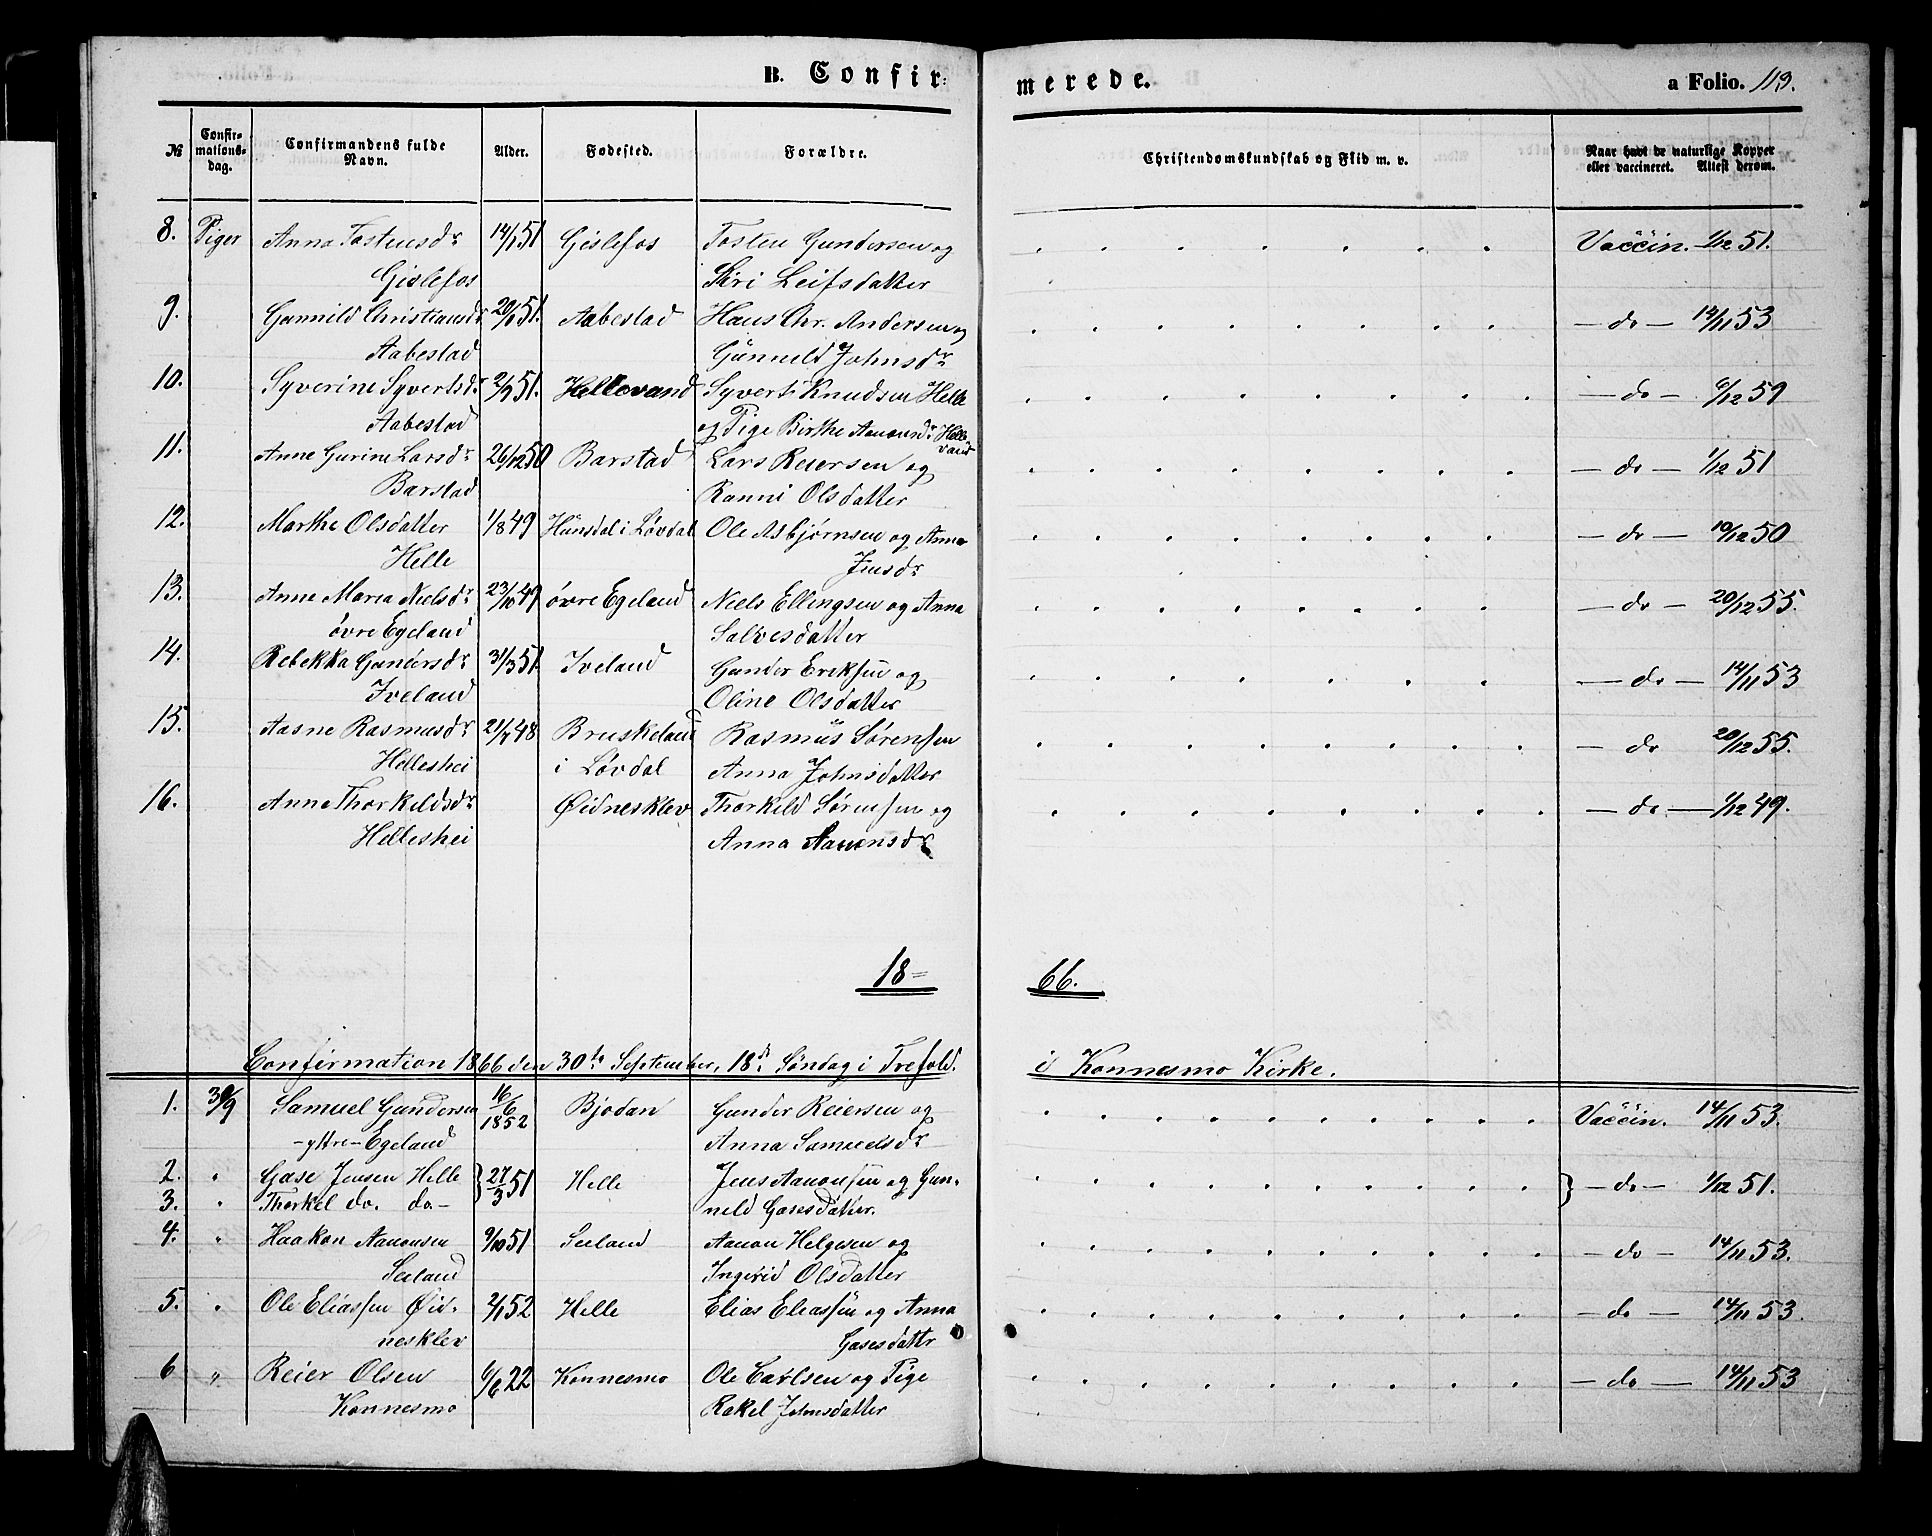 B. Confir-
merede.
a Folio. 113.
№
Confir-
mations-
dag.
Confirmandens fulde
Navn.
Alder.
Fødested.
Forældre.
Christendomskundskab og Flid m. v.
Naar havt de naturlige Kopper
eller vaccineret. Attest derom.
8. Piger Anna Tostensdr 14/1 51 Gislefos Tosten Gundersen og Vaccin. 1/12 51.
Gislefos Siri Leifsdatter
9. Gunnild Christiansdr 20/1 51. Aabestad Hans Chr. Andersen og - do - 14/11 53
Aabestad Gunneld Johnsdr
10. Syverine Syvertsdr 2/9 51. Hellevand Syvert Knudsen Helle - do - 6/12 59
Aabestad og Pige Birthe Aanonsdr Helle
vand
11. Anne Gurine Larsdr 26/12 50 Barstad Lars Reiersen og - do - 1/12 51
Barstad Ranni Olsdatter
12. Marthe Olsdatter 1/8 49 Hunsdal i Løvdal Ole Asbjørnsen og Anna - do - 10/12 50
Helle Jensdr
13. Anne Maria Nielsdr 23/10 49 øvre Egeland Niels Ellingsen og Anna - do - 20/12 55.
øvre Egeland Salvesdatter
14. Rebekka Gundersdr 31/3 51. Iveland Gunder Eriksen og - do - 14/11 53
Iveland Oline Olsdatter
15. Aasne Rasmusdr 21/7 48 Bruskeland Rasmus Sørensen - do 20/12 55.
Helleshei i Løvdal Anna Johnsdatter
16. Anne Thorkeldsdr Øidnesklev Thorkeld Sørensen og - do - 1/12 49.
Helleshei Anna Aanonsdr
18-
66.
Confirmation 1866 den 30te September, 18d. Søndag i Trefold. i Konnesmo Kirke.
1. 30/9 Samuel Gundersen 16/6 1852 Bjodan Gunder Reiersen og Vaccin. 14/11 53.
-ytre- Egeland Anna Samuelsdr
2. " Gase Jensen Helle } 27/3 51 Helle Jens Aanonsen og Gun- } - do - 1/12 51.
3. " Thorkel do. do. - neld Gasesdatter.
4. " Haakon Aanonsen 9/10 51 Seland Aanon Helgesen og - do - 14/11 53.
Seeland Ingerid Olsdatter
5. " Ole Eliassen Øid- 2/1 52 Helle Elias Eliassen og Anna - do - 14/11 53.
nesklev Gasesdattr
6 " Reier Olsen 6/6 22 Konnesmo Ole Carlsen og Pige - do - 14/11 53
Konnesmo Rakel Johnsdatter